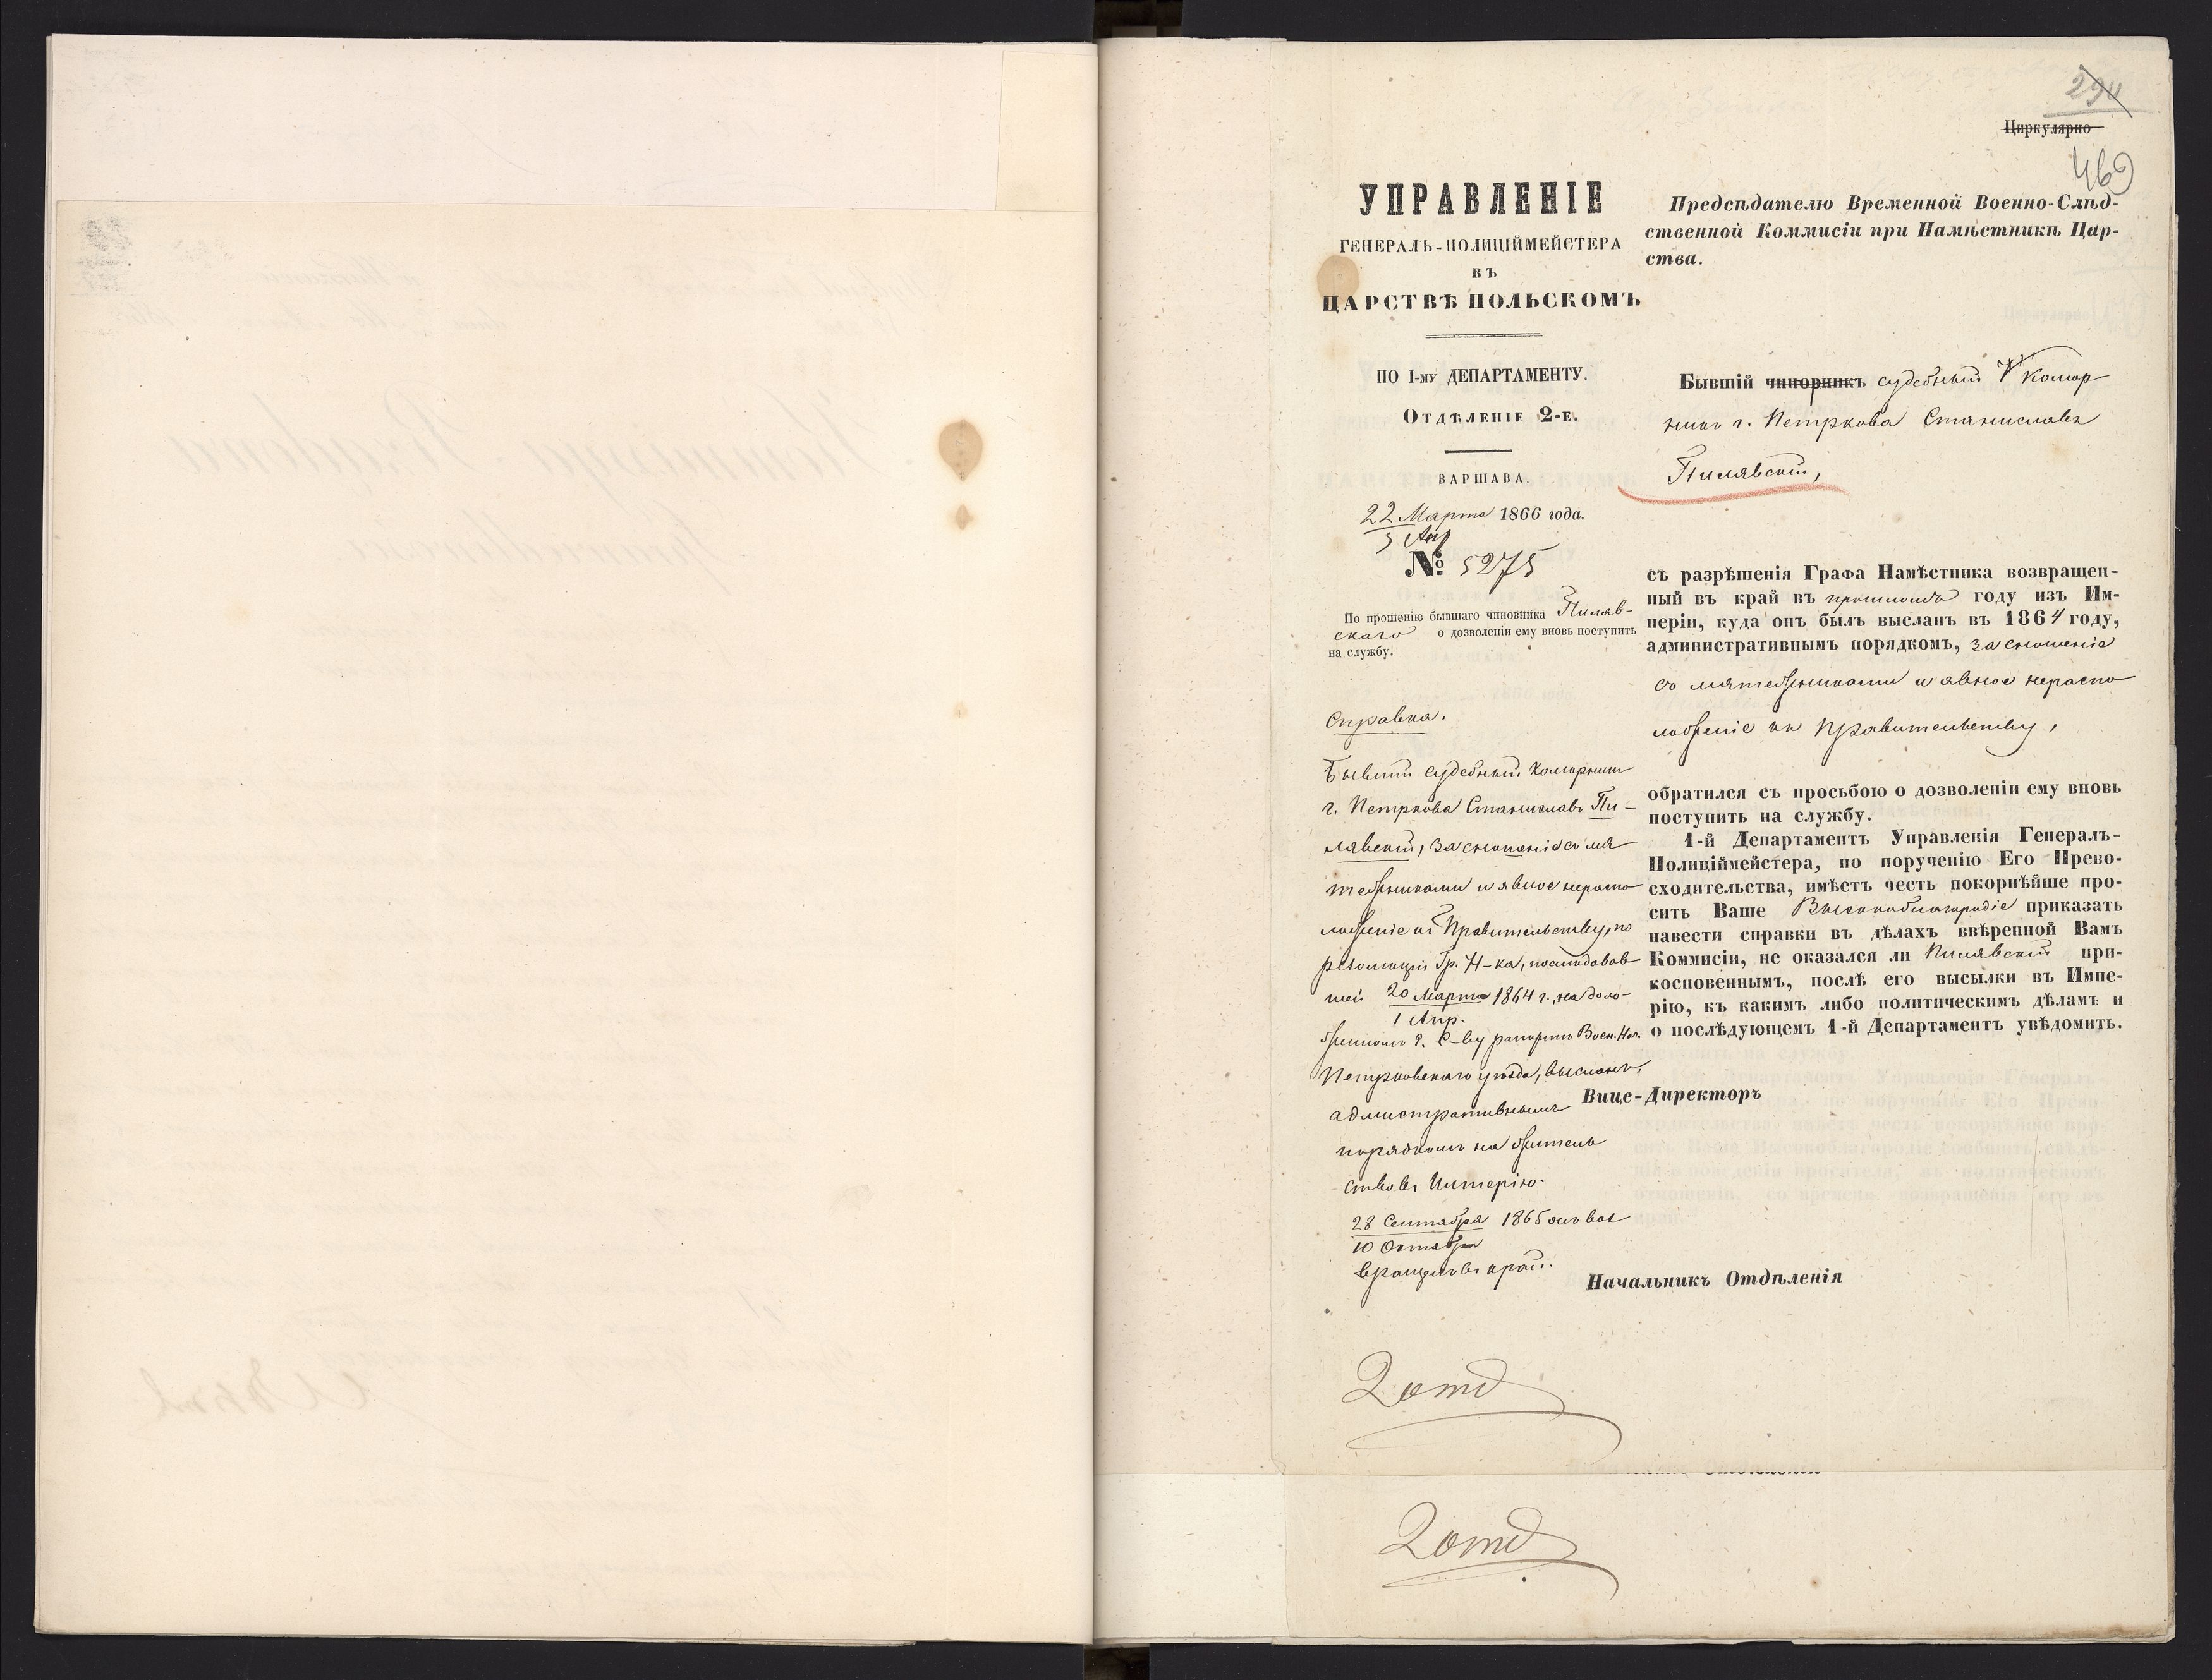 294
Циркулярно
469
УПРАВЛЕНІЕ
ГЕНЕРАЛЪ-ПОЛИЦІЙМЕЙСТЕРА
ВЪ
ЦАРСТВѢ ПОЛЬСКОМЪ
ПО I-му ДЕПАРТАМЕНТУ.
Отдѣленіе 2-е.
ВАРШАВА.
22 Марта 1866 года.
3 Апр
№ 5275
По прошенію бывшаго чиновника Пиляв-
скаго о дозволеніи ему вновь поступить
на службу.
Справка.
Бывшій судебный Коморникъ
г. Петркова Станиславъ Пи-
лявскій, за сношеніе съ мя
тежниками и явное нераспо
ложеніе къ Правительству, по
резолюціи Гр. Н-ка, последовав
шей 20 Марта 1864 г., на доло-
1 Апр.
женномъ Е. С-ву рапортѣ Воен. Нач.
Петрковскаго уѣзда, высланъ,
адмистративнымъ
порядкомъ на житель
ство въ Имперію.
28 Сентября 1865 онъ воз
10 Октября
вращенъ въ край.
2 отд
Предсѣдателю Временной Военно-Слѣд-
ственной Коммисіи при Намѣстникѣ Цар-
ства.
Бывшій чиновникъ судебный Комор
никъ г. Петркова Станиславъ
Пилявскій,
съ разрѣшенія Графа Намѣстника возвращен-
ный въ край въ прошломъ году изъ Им-
періи, куда онъ былъ высланъ въ 1864 году,
административнымъ порядкомъ, за сношеніе
съ мятежниками и явное нераспо
ложеніе къ Правительству,
обратился съ просьбою о дозволеніи ему вновь
поступить на службу.
1-й Департаментъ Управленія Генералъ-
Полиціймейстера, по порученію Его Прево-
сходительства, имѣетъ честь покорнѣйше про-
сить Ваше Высокоблагородіе приказать
навести справки въ дѣлахъ ввѣренной Вамъ
Коммисіи, не оказался ли Пилявскій при-
косновеннымъ, послѣ его высылки въ Импе-
рію, къ какимъ либо политическимъ дѣламъ и
о послѣдующемъ 1-й Департаментъ увѣдомить.
Вице-Директоръ
Начальникъ Отдѣленія
2 отд